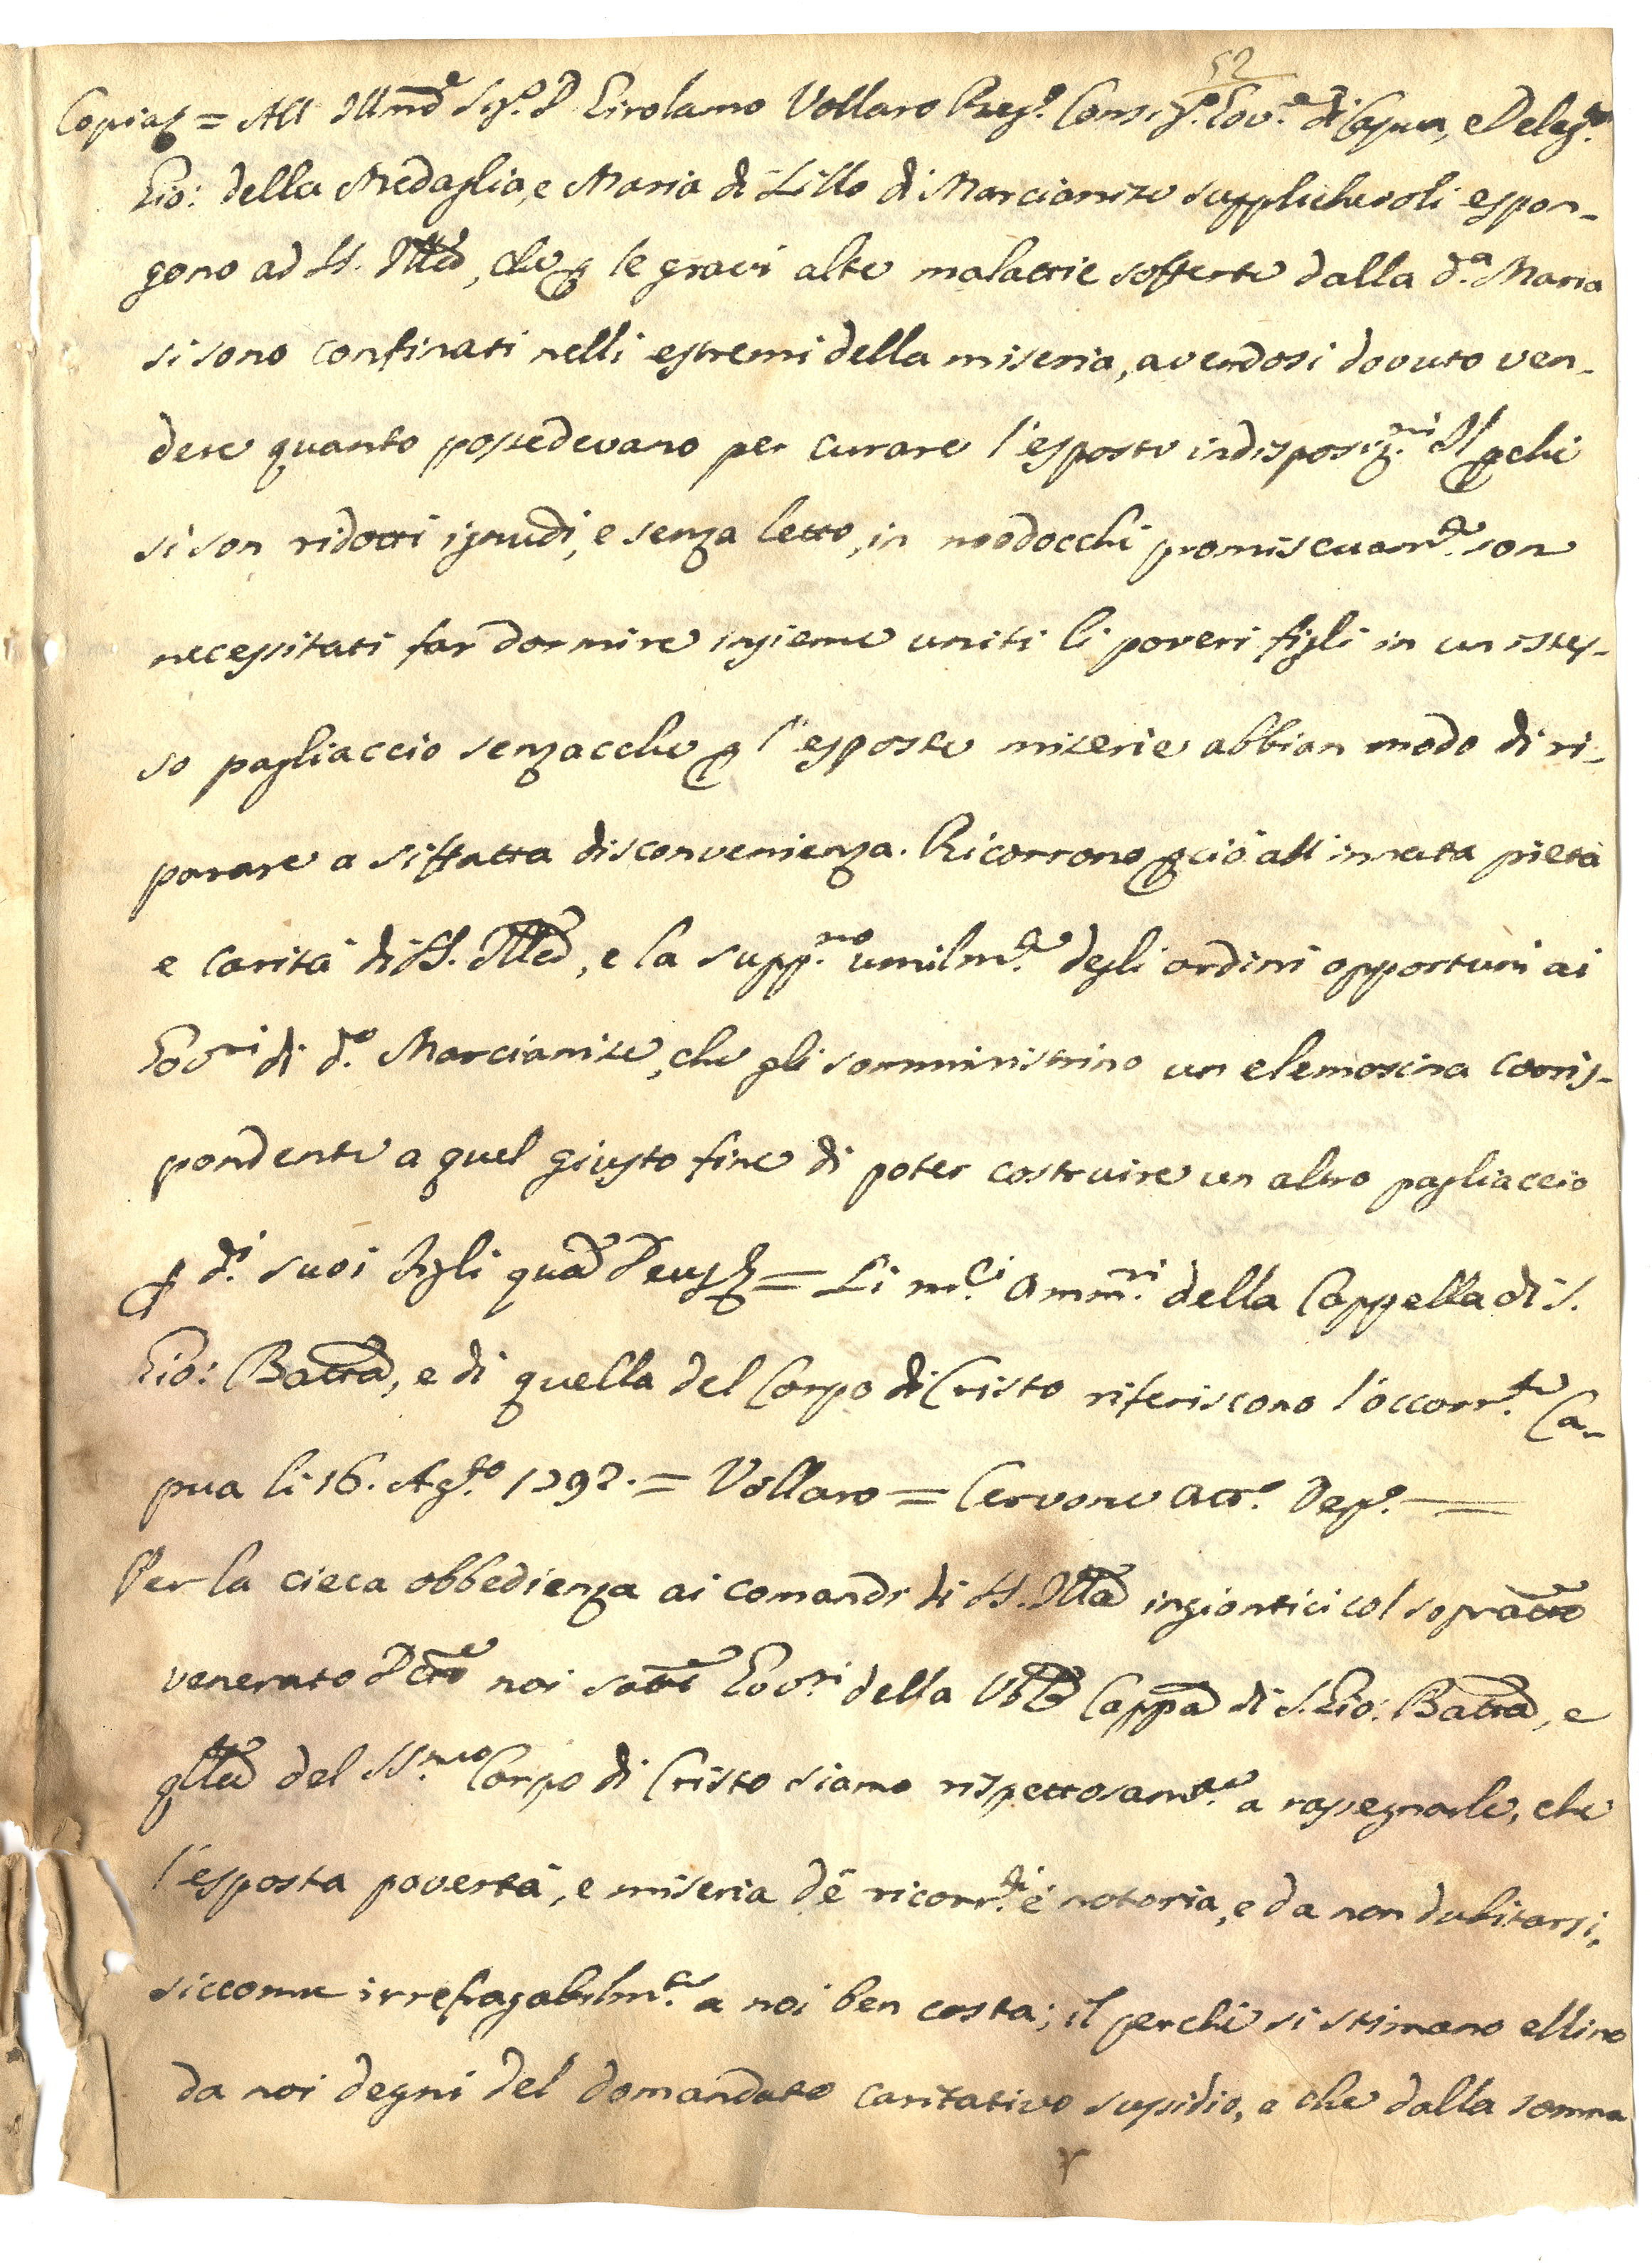 52
Copia = All' Ill.mo Sig.r D. Girolamo Vollaro Reg.o Consig.re Gov.re di Capua, e Deleg.to
Gio: della Medaglia, e Maria di Lillo di Marcianise supplichevoli espon-
gono ad SS. Ill.ma, che p le gravi alte malattie sofferte dalla d.a Maria
si sono confinati nelli estremi della miseria, avendosi dovuto ven-
dere quanto possedevano per curare l'esposte indisposiz.ni Il pche
si son ridotti ignudi, e senza letto, in modocchè promiscuam.te son
necessitati far dormire insieme uniti li poveri figli in un istes-
so pagliaccio senzacche p l'esposte miserie abbian modo di ri-
parare a siffatta disconvenienza. Ricorrono pciò all'innata pietà
e carità di SS. Ill.ma, e la supp.no umilm.te degli ordini opportuni ai
Gov.ri di d.o Marcianise, che gli somministrino un elemosina corris-
pondente a quel giusto fine di poter costruire un altro pagliaccio
p d.i suoi figli qua Deus = Li m.ci Amm.ri della Cappella di S.
Gio: Batta, e di quella del Corpo di Cristo riferiscono l'occorr.te Ca-
pua li 16. Ag.to 1792. = Vollaro = Cervone att.o Dep.o =
Per la cieca obbedienza ai comandi di SS. Ill.ma ingiontici col sopratto
venerato Dto noi satti Gov.ri della Vble Cappa di S. Gio: Batta, e
qlla del SS.mo Corpo di Cristo siamo rispettosam.te a rassegnarle, che
l'esposta povertà, e miseria de' ricorr.ti è notoria, e da non dubitarsi,
siccome irrefragabilm.te a noi ben costa; il perchè si stimano ellino
da noi degni del domandato caritativo sussidio, e che dalla somma